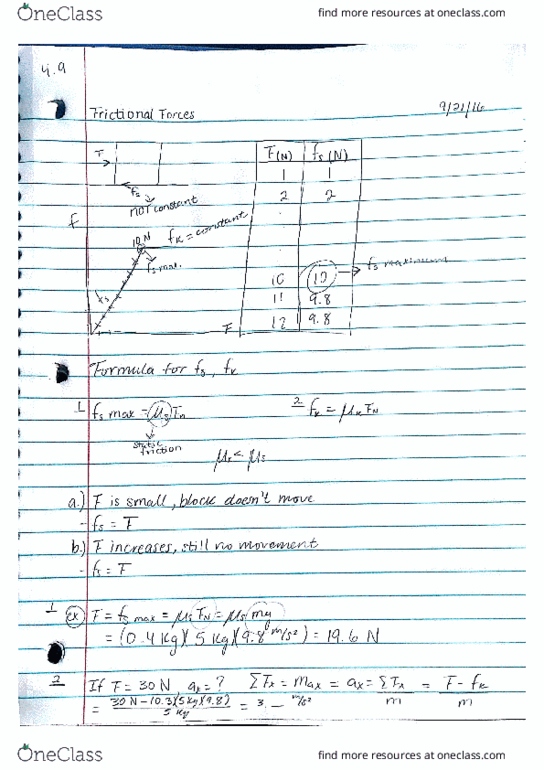 OneClass
find more resources at oneclass.com
4.9
Frictional Forces
9/21/16
F
fs
NOT constant
F(N) fs(N)
1 1
2 2
F
10 N
fk = constant
fs max.
fs
10 10 → fs maximum
11 9.8
12 9.8
F
Formula for fs, fk
1 fs max = μs Fn
2 fk = μk FN
static friction
μk < μs
a.) F is small, block doesn't move
- fs = F
b.) F increases, still no movement
- fs = F
1 ex F = fs max = μs FN = μs mg
= (0.4 kg)(5 kg)(9.8 m/s²) = 19.6 N
2 If F = 30 N ax = ? ΣFx = max = ax = ΣFx / m = F - fk / m
= 30 N - (0.3)(5 kg)(9.8) / 5 kg = 3. — m/s²
OneClass
find more resources at oneclass.com